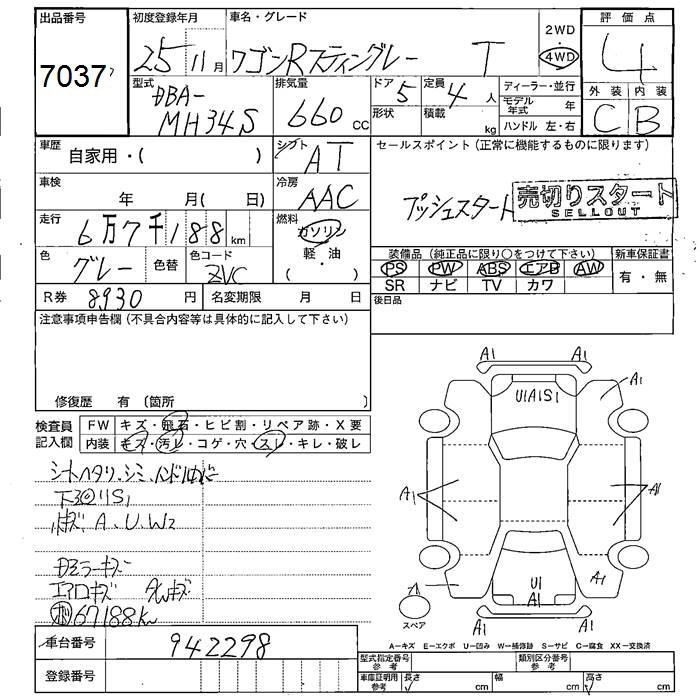 出品番号
7037
初度登録年月 25 11月
車名・グレード ワゴンRスティングレー T
2WD
4WD
評価点 4
外装 内装
C B
型式 DBA-
MH34S
排気量 660 cc
ドア 5
形状
定員 4 人
積載 kg
ディーラー・並行
モデル年式 年
ハンドル 左・右
車歴 自家用・( )
シフト AT
車検 年 月( 日)
冷房 AAC
走行 6万7千188km
燃料 ガソリン
軽・油
( )
色 グレー
色替
色コード ZVC
R券 8930 円
名変期限 月 日
セールスポイント(正常に機能するものに限ります)
プッシュスタート
売切りスタート
SELLOUT
装備品(純正品に限り○をつけて下さい)
新車保証書
PS PW ABS エアB AW
SR ナビ TV カワ
有・無
後日品
注意事項申告欄(不具合内容等は具体的に記入して下さい)
修復歴 有(箇所 )
検査員
記入欄
FW キズ・飛石・ヒビ割・リペア跡・X要
内装 キズ・汚レ・コゲ・穴・スレ・キレ・破レ
シートヘタリ、シミ、
S1
A、U、W2
ミラーキズ
エアロキズ
67188km
A1 A1
U1A1S1
A1
A1
A1
U1
A1
A1
A1 A1
スペア
A-キズ E-エクボ U-凹み W-補修跡 S-サビ C-腐食 XX-交換済
車台番号 942298
登録番号
型式指定番号
参考
類別区分番号
参考
車庫証明用
参考
長さ cm
幅 cm
高さ cm